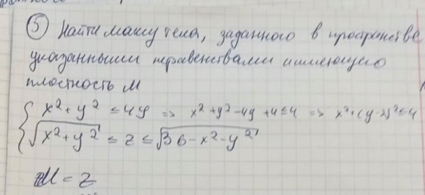 ⑤ Найти массу тела, заданного в пространстве
указанными неравенствами имеющего
плотность М
x² + y² ≤ 4y => x² + y² - 4y + 4 ≤ 4 => x² + (y - 2)² ≤ 4
√(x² + y²) ≤ z ≤ √(36 - x² - y²)
M = z